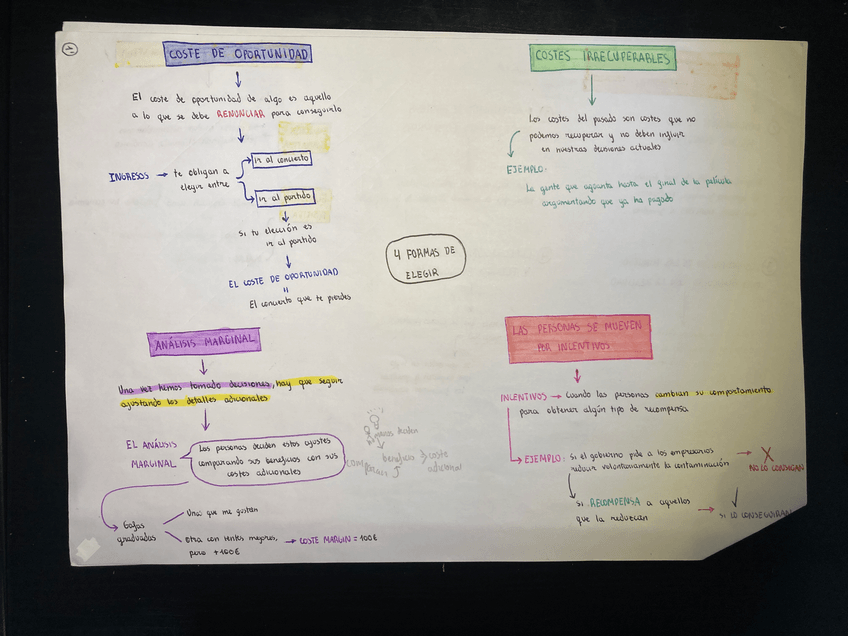 1
COSTE DE OPORTUNIDAD
El coste de oportunidad de algo es aquello
a lo que se debe RENUNCIAR para conseguirlo
INGRESOS → te obligan a
elegir entre
ir al concierto
ir al partido
Si tu elección es
ir al partido
EL COSTE DE OPORTUNIDAD
=
El concierto que te pierdes
COSTES IRRECUPERABLES
Los costes del pasado son costes que no
podemos recuperar y no deben influir
en nuestras decisiones actuales
EJEMPLO:
La gente que aguanta hasta el final de la película
argumentando que ya ha pagado
4 FORMAS DE
ELEGIR
ANÁLISIS MARGINAL
Una vez hemos tomado decisiones, hay que seguir
ajustando los detalles adicionales
EL ANÁLISIS
MARGINAL
Las personas deciden estos ajustes
comparando sus beneficios con sus
costes adicionales
beneficio
coste
adicional
Gafas
graduadas
Unas que me gustan
Otra con lentes mejores,
pero +100€
→ COSTE MARGIN = 100€
LAS PERSONAS SE MUEVEN
POR INCENTIVOS
INCENTIVOS → Cuando las personas cambian su comportamiento
para obtener algún tipo de recompensa
EJEMPLO: Si el gobierno pide a los empresarios
reducir voluntariamente la contaminación
→ X
NO LO CONSEGUIRAN
Si RECOMPENSA a aquellos
que la reduzcan
→ SI LO CONSEGUIRAN